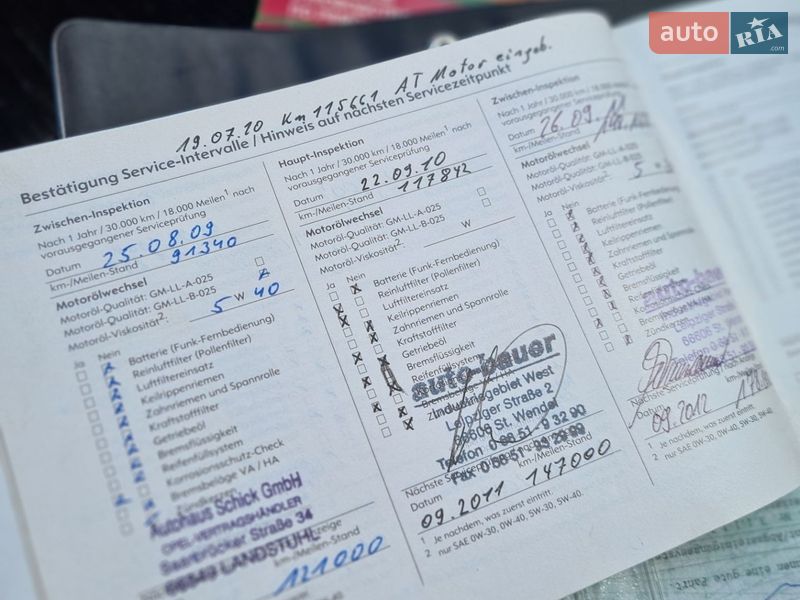 auto RIA .com
19.07.10 Km 115661 AT Motor eingeb.
Bestätigung Service-Intervalle / Hinweis auf nächsten Servicezeitpunkt
Zwischen-Inspektion
Nach 1 Jahr / 30.000 km / 18.000 Meilen¹ nach
vorausgegangener Serviceprüfung
Datum 25.08.09
km-/Meilen-Stand 91340
Motorölwechsel
Motoröl-Qualität: GM-LL-A-025
Motoröl-Qualität: GM-LL-B-025
Motoröl-Viskosität²: 5 W 40
Ja Nein
Batterie (Funk-Fernbedienung)
Reinluftfilter (Pollenfilter)
Luftfiltereinsatz
Keilrippenriemen
Zahnriemen und Spannrolle
Kraftstofffilter
Getriebeöl
Bremsflüssigkeit
Reifenfüllsystem
Korrosionsschutz-Check
Bremsbeläge VA / HA
Zündkerzen
Autohaus Schick GmbH
OPEL-VERTRAGSHÄNDLER
Saarbrücker Straße 34
66849 LANDSTUHL
km-/Meilen-Stand
121000
Haupt-Inspektion
Nach 1 Jahr / 30.000 km / 18.000 Meilen¹ nach
vorausgegangener Serviceprüfung
Datum 22.09.10
km-/Meilen-Stand 117842
Motorölwechsel
Motoröl-Qualität: GM-LL-A-025
Motoröl-Qualität: GM-LL-B-025
Motoröl-Viskosität²: W
Ja Nein
Batterie (Funk-Fernbedienung)
Reinluftfilter (Pollenfilter)
Luftfiltereinsatz
Keilrippenriemen
Zahnriemen und Spannrolle
Kraftstofffilter
Getriebeöl
Bremsflüssigkeit
Reifenfüllsystem
auto-bauer
Industriegebiet West
Leipziger Straße 2
66606 St. Wendel
Telefon 0 68 51 - 9 32 90
Fax 0 68 51 - 93 29 99
km-/Meilen-Stand
Datum
09.2011 147000
1 Je nachdem, was zuerst eintritt.
2 nur SAE 0W-30, 0W-40, 5W-30, 5W-40.
Zwischen-Inspektion
Nach 1 Jahr / 30.000 km / 18.000 Meilen
vorausgegangener Serviceprüfung
Datum 26.09.11
km-/Meilen-Stand
Motorölwechsel
Motoröl-Qualität: GM-LL-A-025
Motoröl-Qualität: GM-LL-B-025
Motoröl-Viskosität²: 5
Ja Nein
Batterie (Funk-Fernbedienung)
Reinluftfilter (Pollenfilter)
Luftfiltereinsatz
Keilrippenriemen
Zahnriemen und Spannrolle
Kraftstofffilter
Getriebeöl
Nächste Serviceprüfung nach
Datum
09.2012
1 Je nachdem, was zuerst eintritt.
2 nur SAE 0W-30, 0W-40, 5W-30, 5W-40.